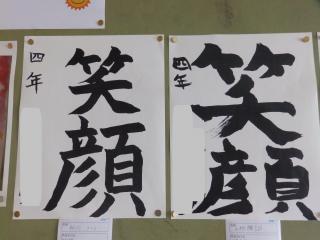 四年
笑顔
四年
笑顔